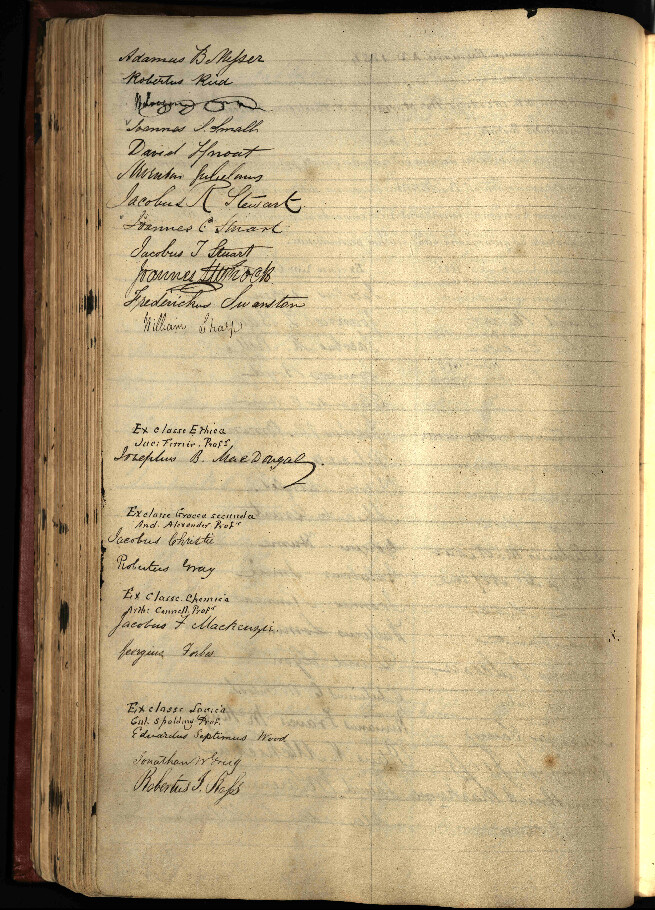 Adamus B Messer
Robertus Reid
Joannes S. Small
David Sproat
Jacobus R Stewart
Joannes C Stuart
Jacobus T Stuart
Joannes
Fredericus Swanston
William Sharp
Ex classe Ethica
Jac: Ferrie. Profr
Josephus B. MacDougal
Ex classe Graeca secunda
And. Alexander Profr
Jacobus Christie
Robertus Gray
Ex Classe Chemica
Arth: Connell, Profr
Jacobus F Mackenzie.
Georgius Forbes
Ex classe Logica
Gul. Spalding Prof.
Eduardus Septimus Wood
Jonathan
Robertus J.